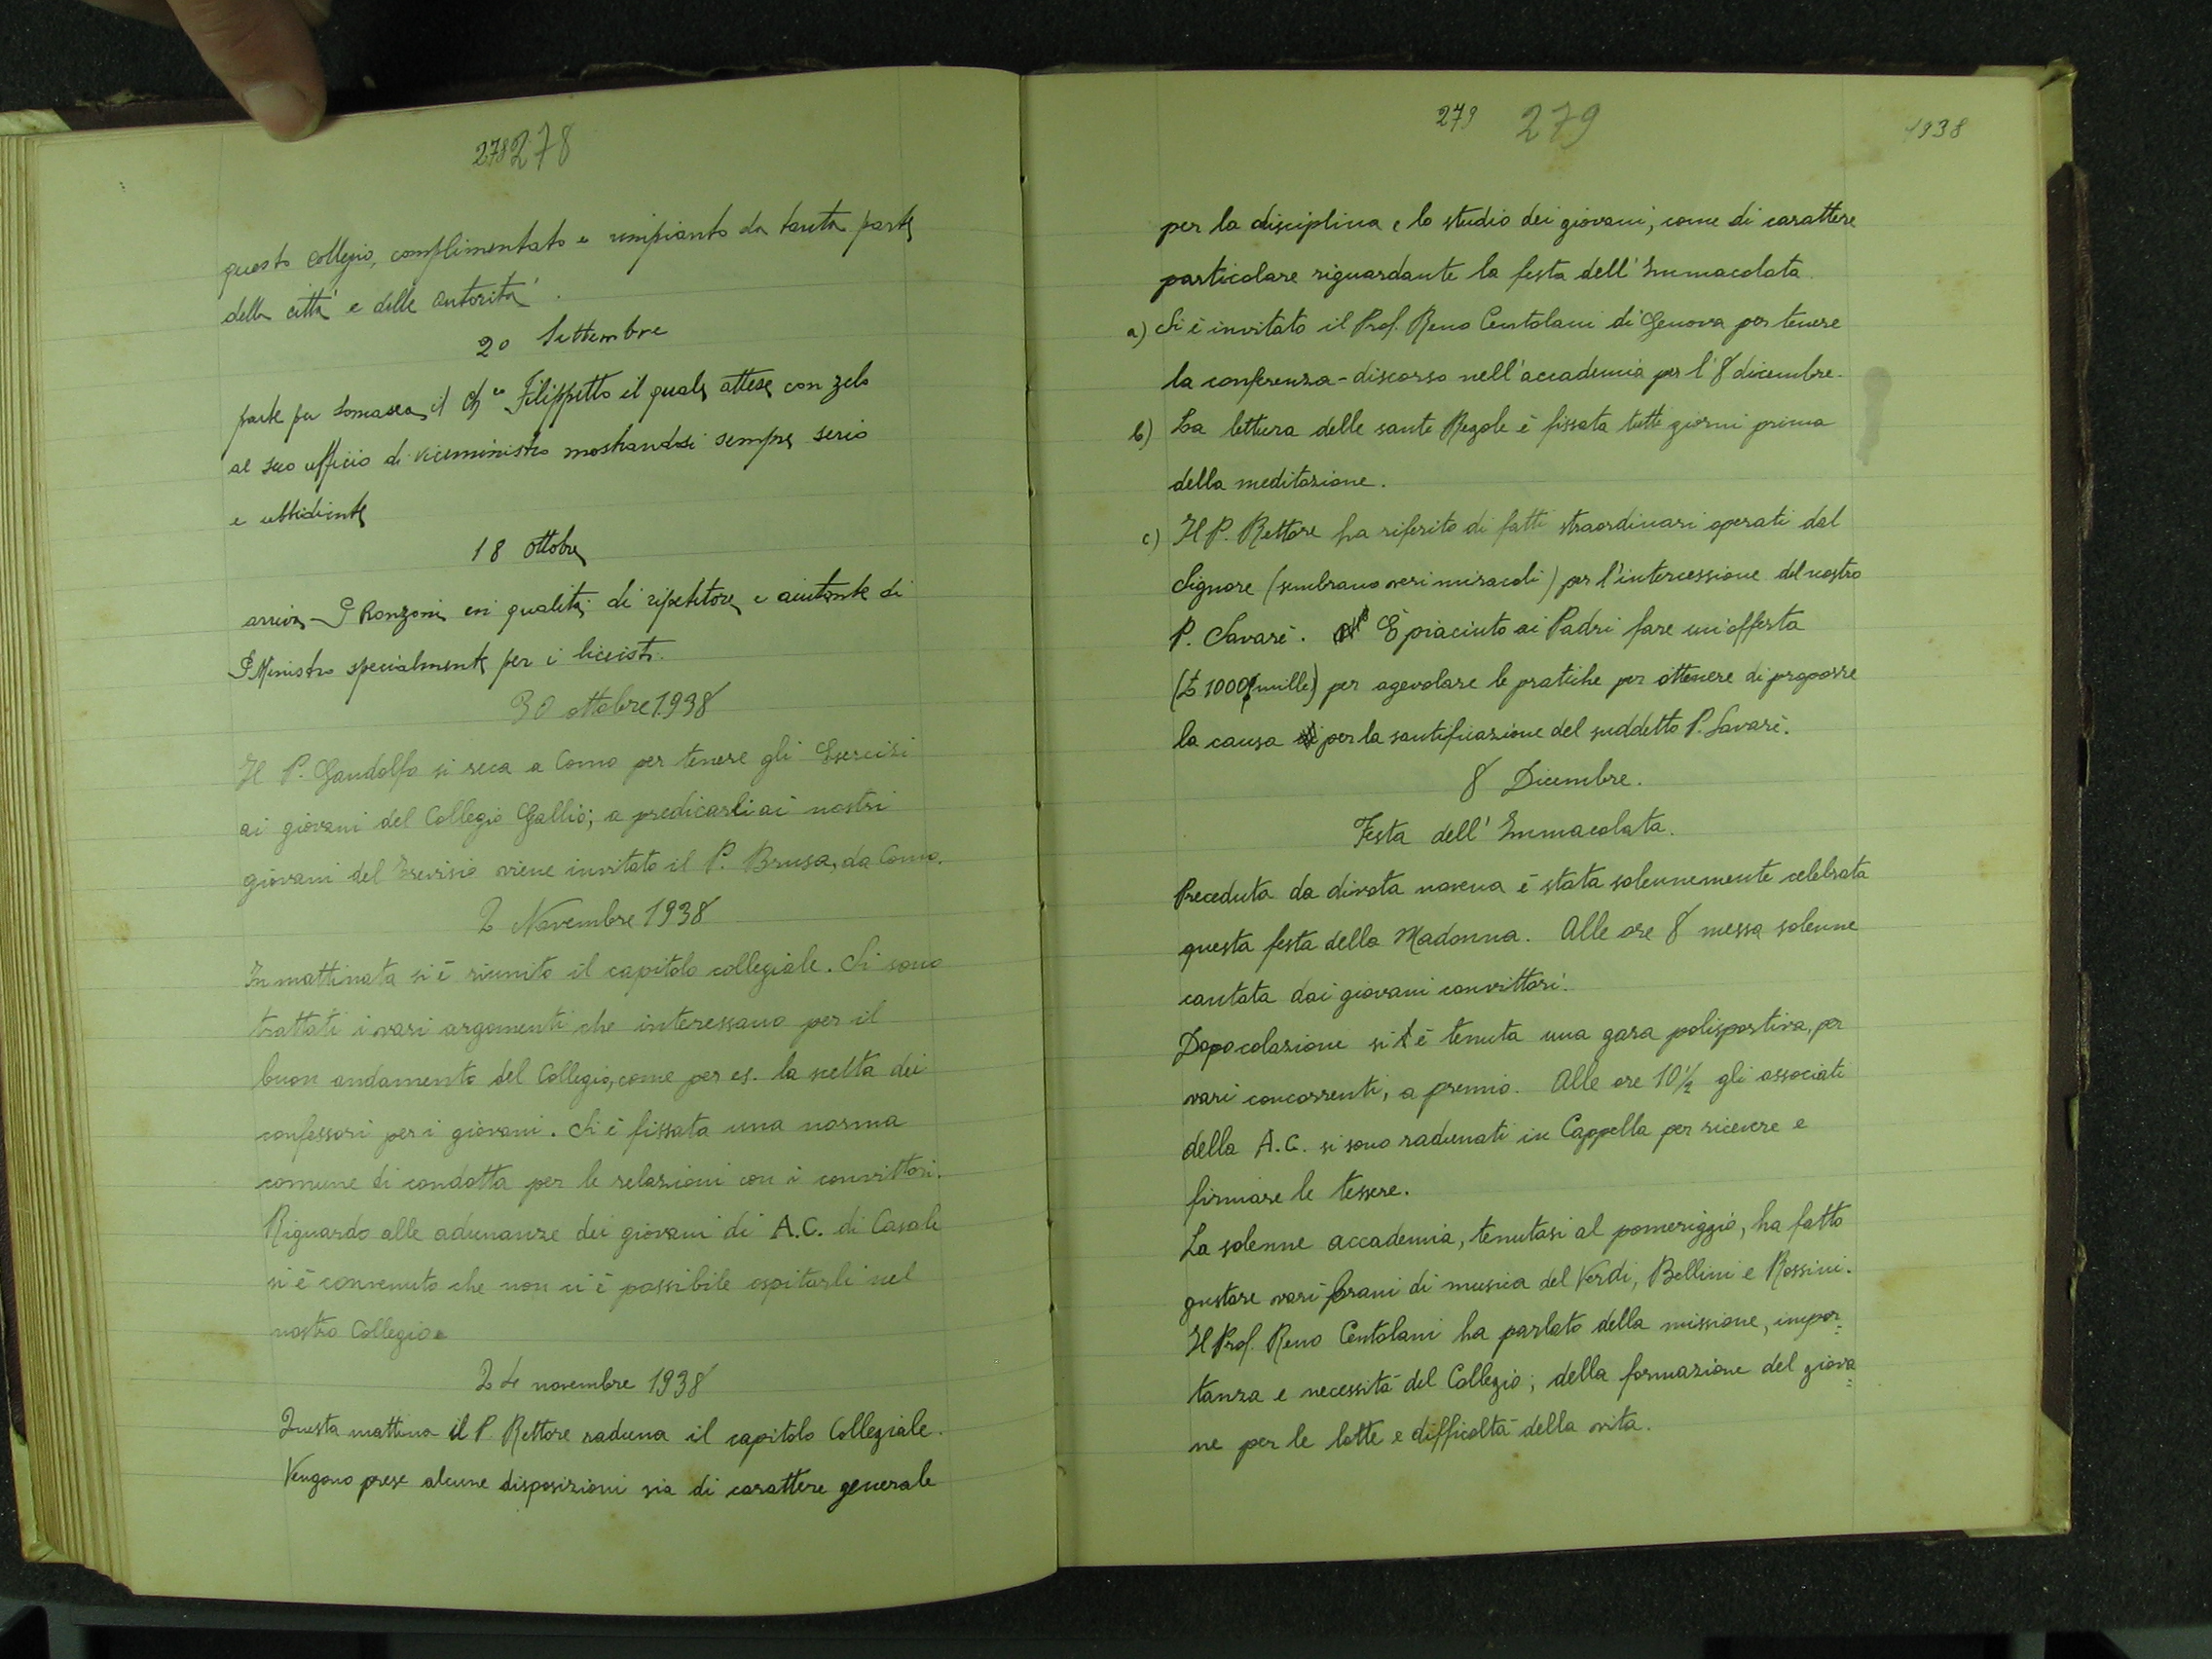 278 278
questo collegio, complimentato e rimpianto da tanta parte
della città e delle autorità.
20 Settembre
parte per Somasca il Ch.co Filippetto il quale attese con zelo
al suo ufficio di viceministro mostrandosi sempre serio
e ubbidiente
18 ottobre
arriva P Ronzoni in qualità di ripetitore e aiutante di
P. Ministro specialmente per i liceisti.
30 ottobre 1938
Il P. Gandolfo si reca a Como per tenere gli Esercizi
ai giovani del Collegio Gallio; a predicarli ai nostri
giovani del Trevisio viene invitato il P. Brusa, da Como.
2 Novembre 1938
In mattinata si è riunito il capitolo collegiale. Si sono
trattati i vari argomenti che interessano per il
buon andamento del Collegio, come per es. la scelta dei
confessori per i giovani. Si è fissata una norma
comune di condotta per le relazioni con i convittori.
Riguardo alle adunanze dei giovani di A.C. di Casale
si è convenuto che non ci è possibile ospitarli nel
nostro Collegio.
24 novembre 1938
Questa mattina il P. Rettore raduna il capitolo Collegiale.
Vengono prese alcune disposizioni sia di carattere generale
279 279
1938
per la disciplina e lo studio dei giovani, come di carattere
particolare riguardante la festa dell'Immacolata.
a) Si è invitato il Prof. Reno Centolani di Genova per tenere
la conferenza-discorso nell'accademia per l'8 dicembre.
b) La lettura delle sante Regole è fissata tutti giorni prima
della meditazione.
c) Il P. Rettore ha riferito di fatti straordinari operati dal
Signore (sembrano veri miracoli) per l'intercessione del nostro
P. Savarè. È piaciuto ai Padri fare un'offerta
(£ 1000 (mille) per agevolare le pratiche per ottenere di proporre
la causa per la santificazione del suddetto P. Savarè.
8 Dicembre.
Festa dell'Immacolata.
Preceduta da divota novena è stata solennemente celebrata
questa festa della Madonna. Alle ore 8 messa solenne
cantata dai giovani convittori.
Dopo colazione si è tenuta una gara polisportiva, per
vari concorrenti, a premio. Alle ore 10 1/2 gli associati
della A.C. si sono radunati in Cappella per ricevere e
firmare le tessere.
La solenne accademia, tenutasi al pomeriggio, ha fatto
gustare vari brani di musica del Verdi, Bellini e Rossini.
Il Prof. Reno Centolani ha parlato della missione, impor=
tanza e necessità del Collegio; della formazione del giova=
ne per le lotte e difficoltà della vita.